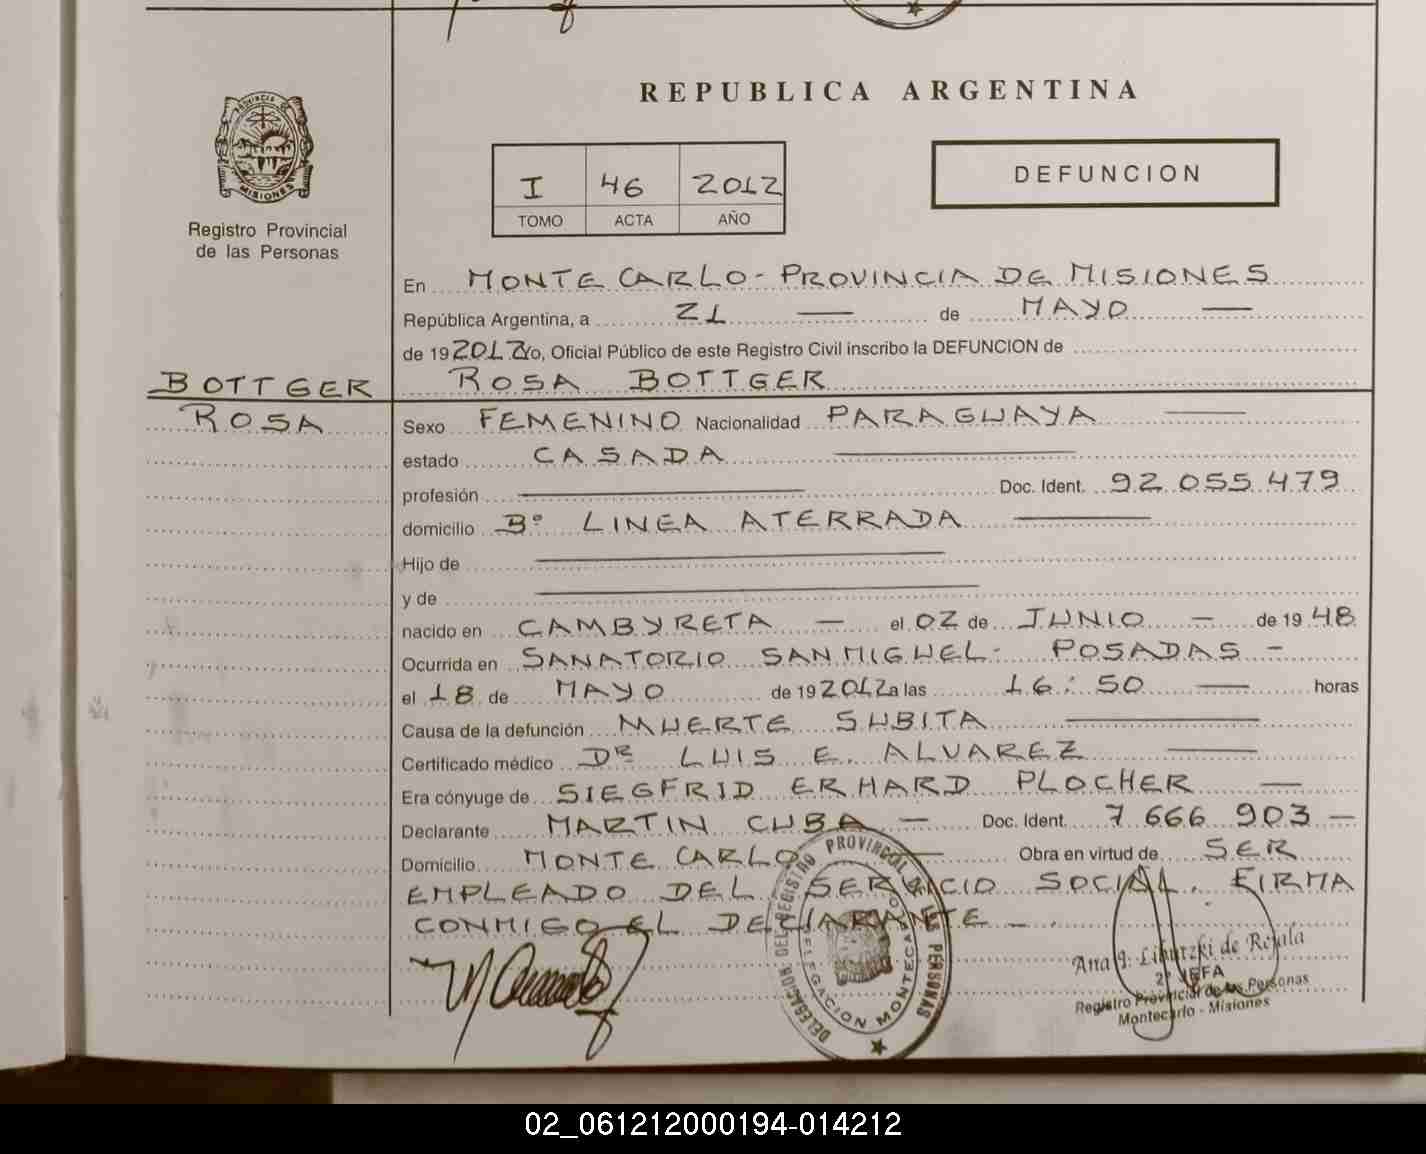 REPUBLICA ARGENTINA
PROVINCIA DE
MISIONES
Registro Provincial
de las Personas
I 46 2012
TOMO ACTA AÑO
DEFUNCION
En MONTE CARLO - PROVINCIA DE MISIONES
República Argentina, a 21 — de MAYO —
de 19 2012 Yo, Oficial Público de este Registro Civil inscribo la DEFUNCION de
BOTTGER
ROSA BOTTGER
ROSA
Sexo FEMENINO Nacionalidad PARAGUAYA —
estado CASADA —
profesión — Doc. Ident. 92 055 479
domicilio Bº LINEA ATERRADA —
Hijo de —
y de —
nacido en CAMBYRETA — el 02 de JUNIO — de 19 48
Ocurrida en SANATORIO SAN MIGUEL - POSADAS -
el 18 de MAYO de 19 2012 a las 16:50 — horas
Causa de la defunción MUERTE SUBITA —
Certificado médico DR LUIS E. ALVAREZ —
Era cónyuge de SIEGFRID ERHARD PLOCHER —
Declarante MARTIN CUBA — Doc. Ident. 7 666 903 —
Domicilio MONTE CARLO — Obra en virtud de SER
EMPLEADO DEL SERVICIO SOCIAL. FIRMA
CONMIGO EL DECLARANTE — .
DELEGACION DEL REGISTRO PROVINCIAL DE LAS PERSONAS
DELEGACION MONTECARLO
Ana I. de Rejala
2º JEFA
Registro Provincial de las Personas
Montecarlo - Misiones
02_061212000194-014212